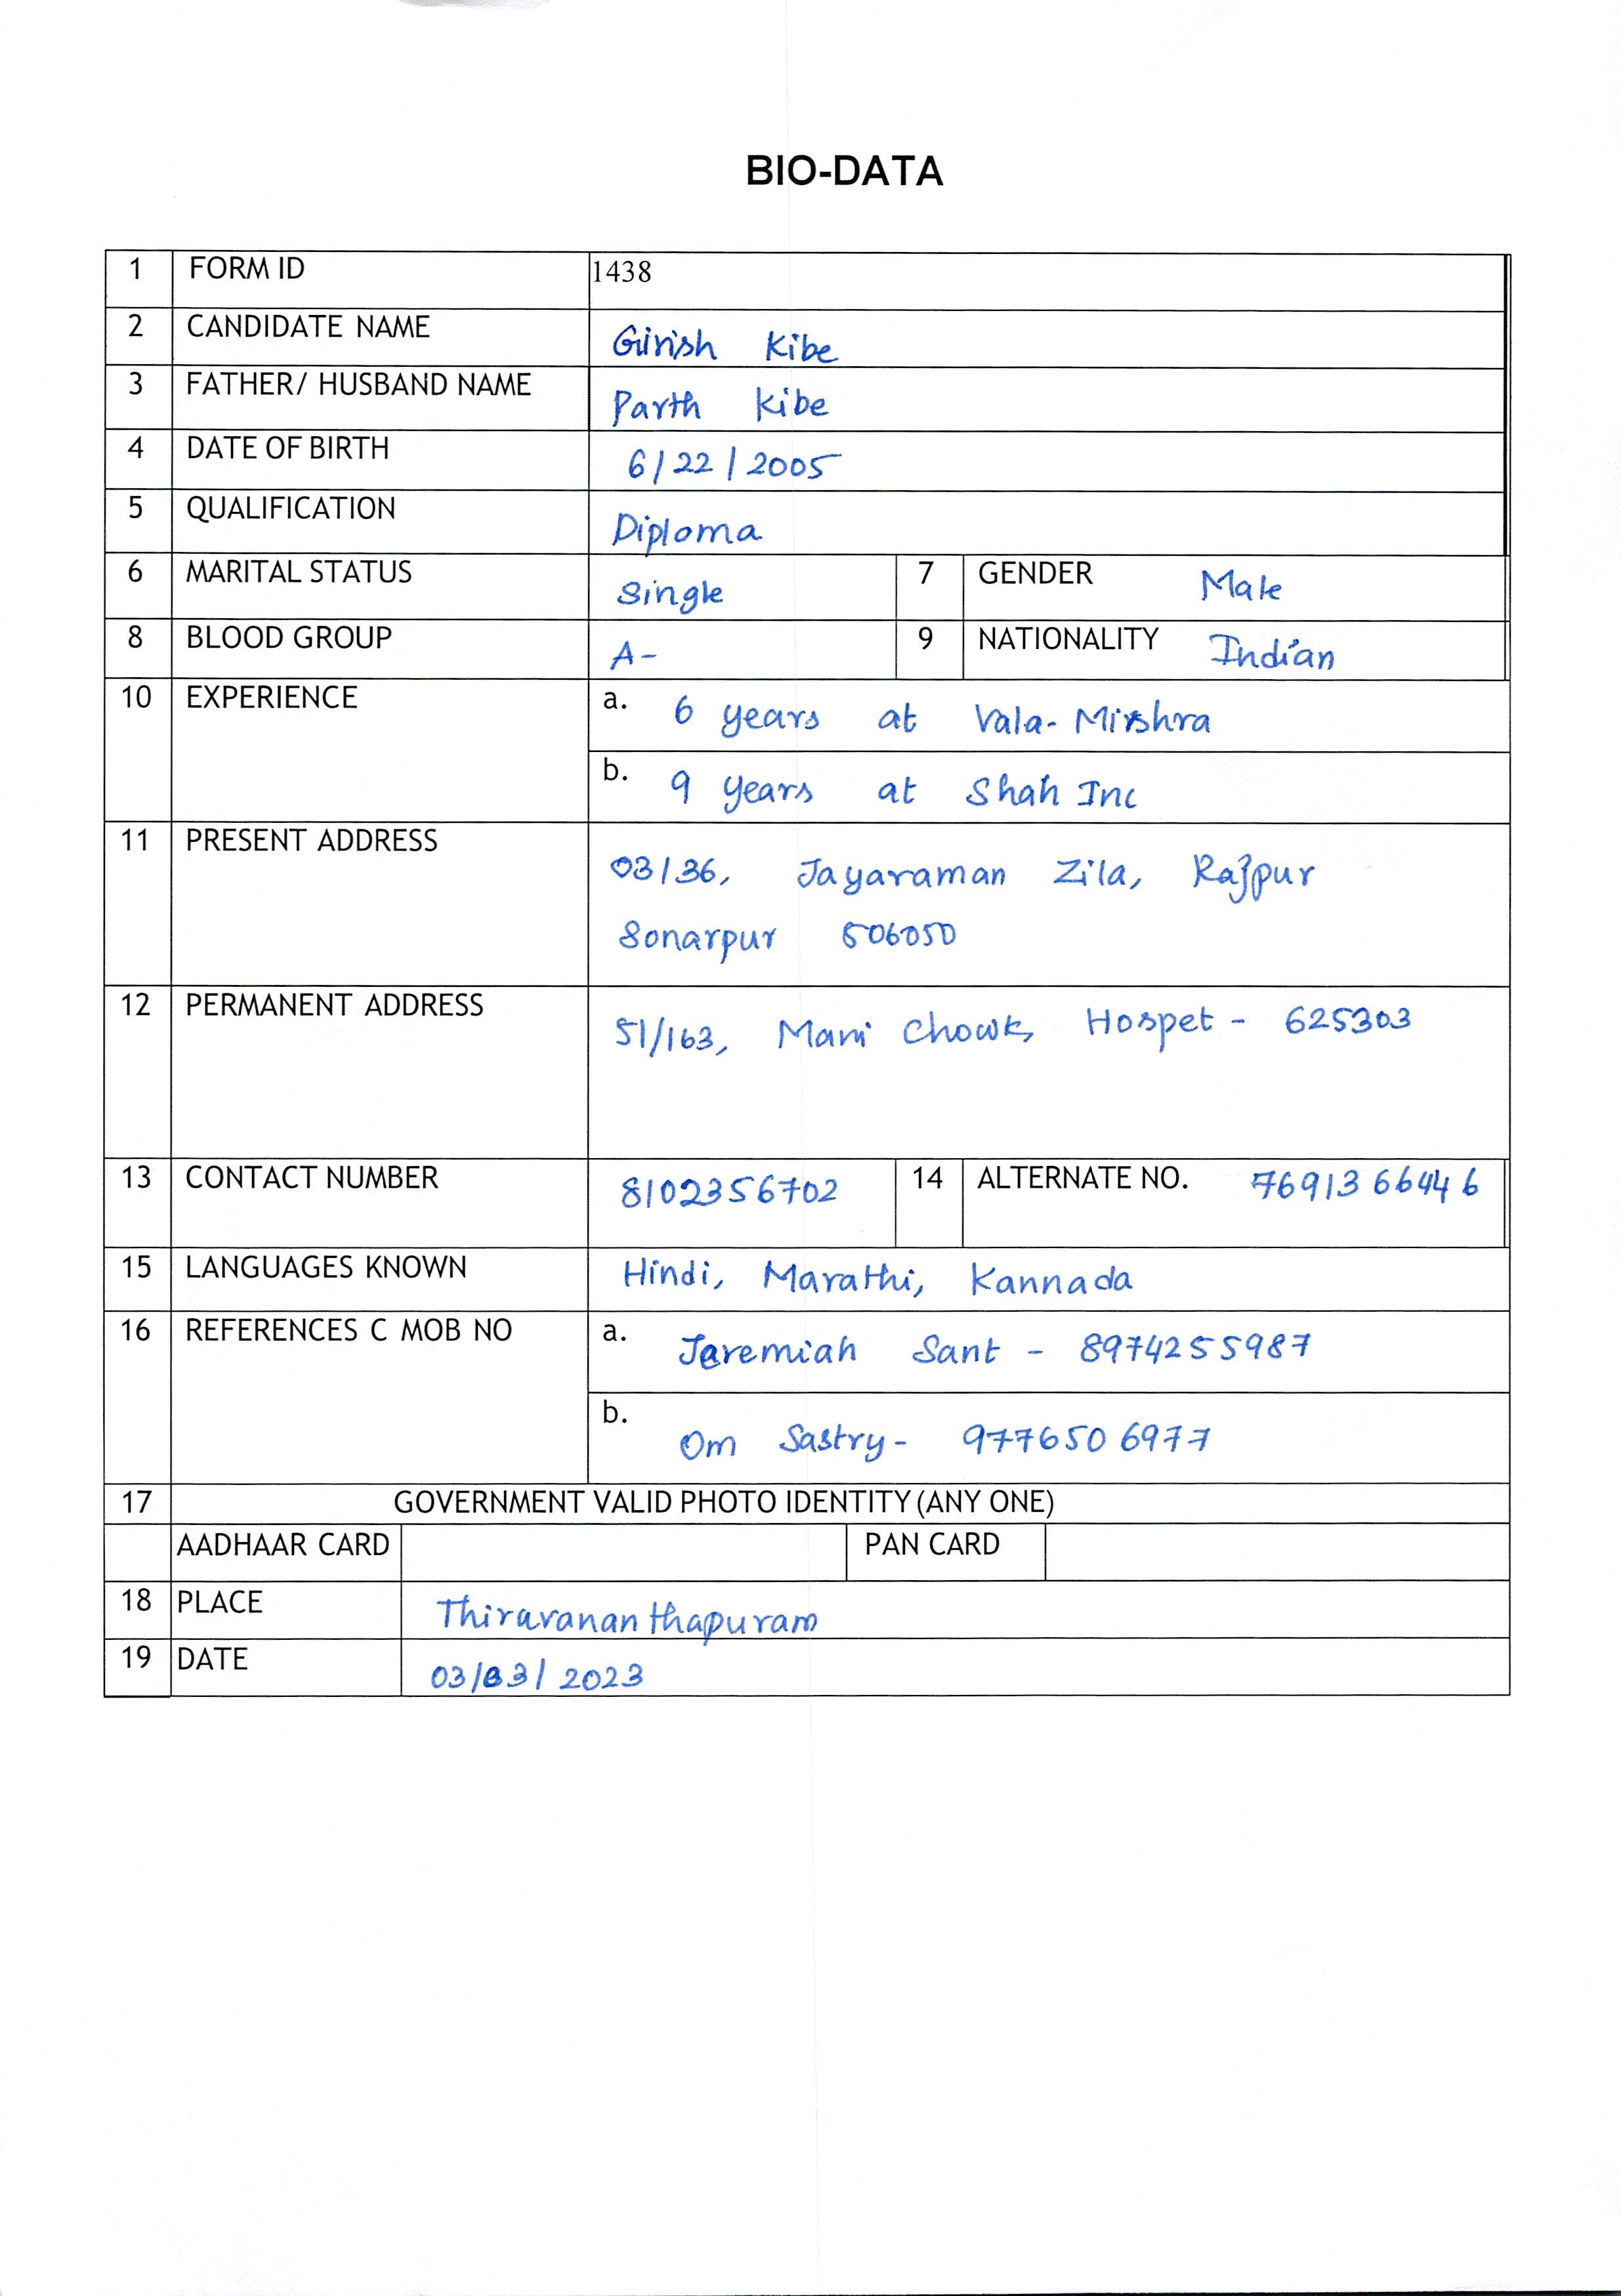 BIO-DATA
1 FORM ID 1438
2 CANDIDATE NAME Girish Kibe
3 FATHER/ HUSBAND NAME Parth Kibe
4 DATE OF BIRTH 6/22/2005
5 QUALIFICATION Diploma
6 MARITAL STATUS Single 7 GENDER Male
8 BLOOD GROUP A- 9 NATIONALITY Indian
10 EXPERIENCE a. 6 years at Vala-Mishra
b. 9 years at Shah Inc
11 PRESENT ADDRESS 03/36, Jayaraman Zila, Rajpur
Sonarpur 506050
12 PERMANENT ADDRESS 51/163, Mani Chowk, Hospet - 625303
13 CONTACT NUMBER 8102356702 14 ALTERNATE NO. 7691366446
15 LANGUAGES KNOWN Hindi, Marathi, Kannada
16 REFERENCES C MOB NO a. Jeremiah Sant - 8974255987
b. Om Sastry - 9776506977
17 GOVERNMENT VALID PHOTO IDENTITY (ANY ONE)
AADHAAR CARD PAN CARD
18 PLACE Thiruvananthapuram
19 DATE 03/03/2023